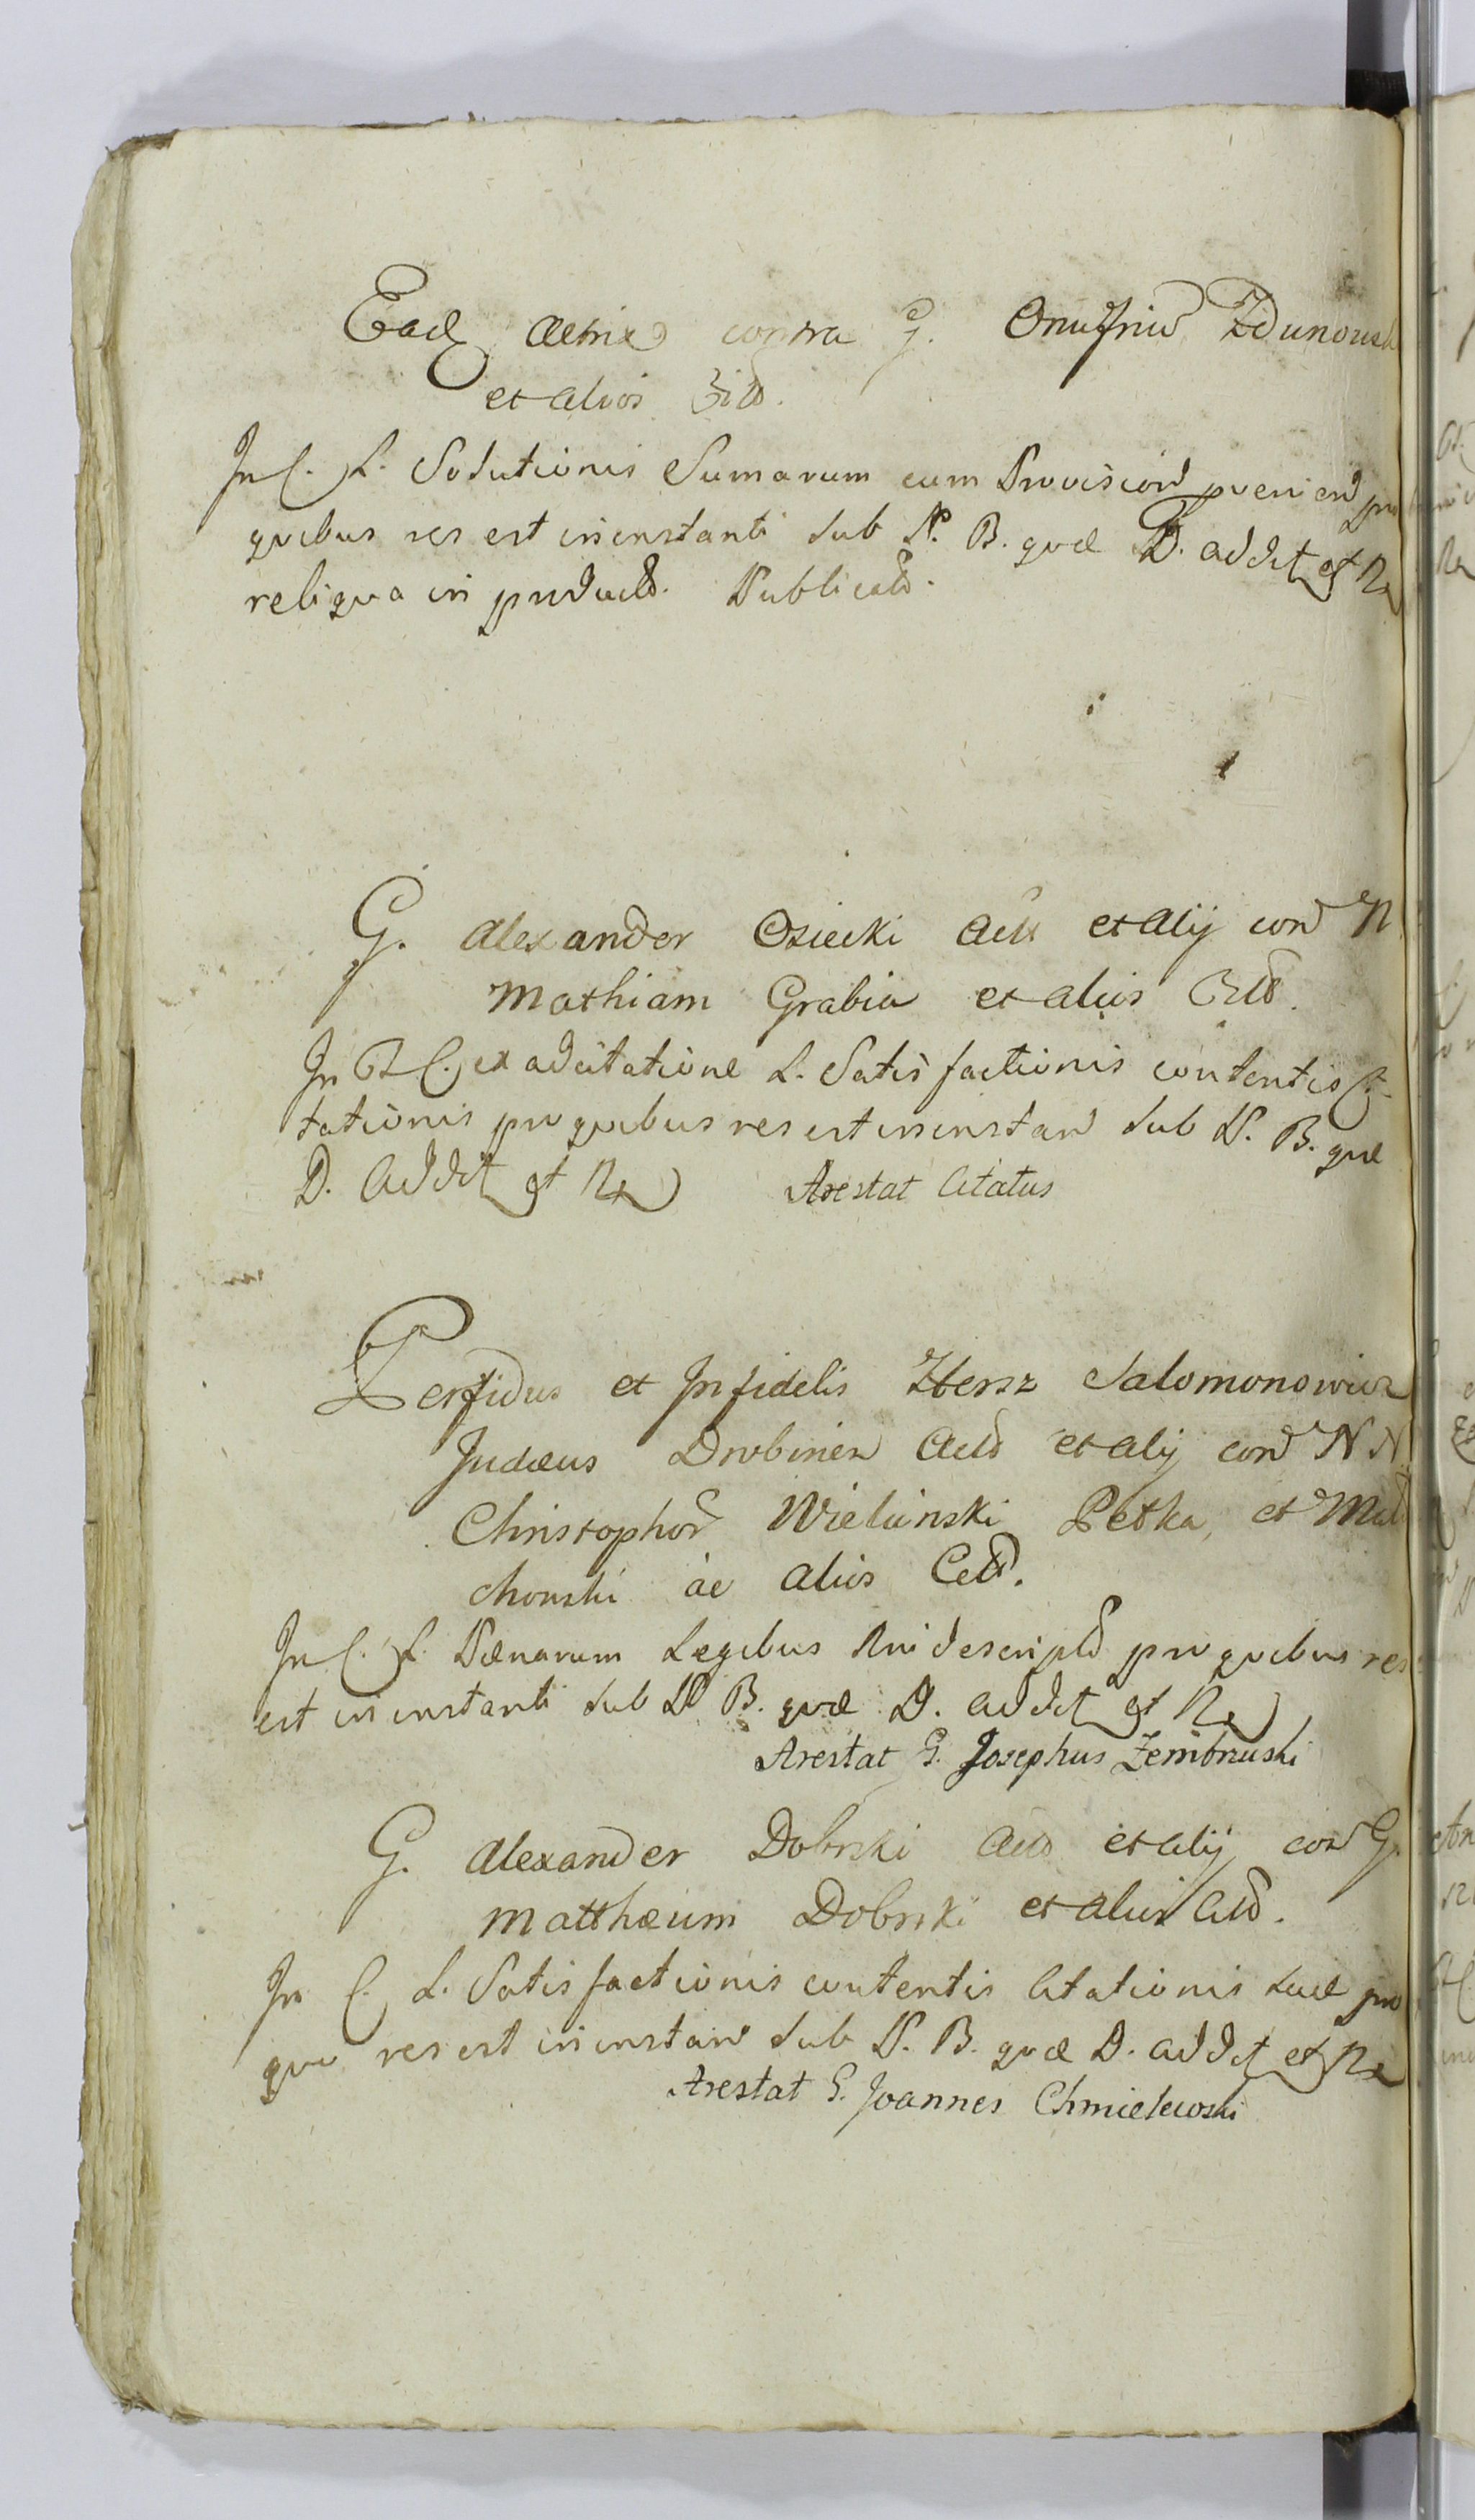 Ead Actrix contra G. Onufriu Zdunowsk
et alios Citt.
In C. L. Solutionis Sumarum cum Provision provenien pro
quibus res est in instanti sub P. B. quæ D. addet et Re
reliqua in product. Publicat.
G. Alexander Osiecki Act et alij con N
Mathiam Grabia et alios Citt.
In C. ex adcitatione L. Satisfactionis contentis Ci-
tationis pro quibus res est in instan sub P. B. quæ
D. addet et Re Arestat Citatus
Perfidus et Infidelis Hersz Salomonowicz
Judæus Drobinen Act et alij con N N
Christophor Wieluński Petka, et Mal
chowski ac alios Citt.
In C. L. Pænarum Legibus Rni descript pro quibus res
est in instanti sub P. B. quæ D. addet et Re
Arestat G. Josephus Zembrzuski
G. Alexander Dobrski Act et alij con G.
Matthæum Dobrski et alios Citt.
In C. L. Satisfactionis contentis Citationis suæ pro
quo res est in instan sub P. B. quæ D. addet et Re
Arestat G. Joannes Chmielewski